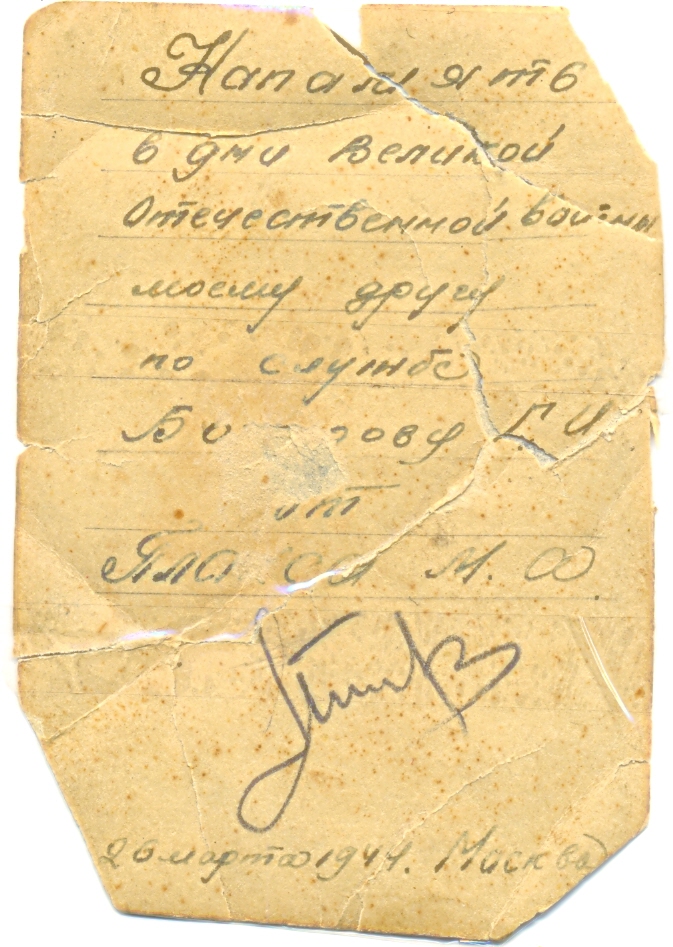 На память
в дни Великой
Отечественной войны
моему другу
по службе
Г. И.
от
М. Ф.
26 марта 1944. Москва